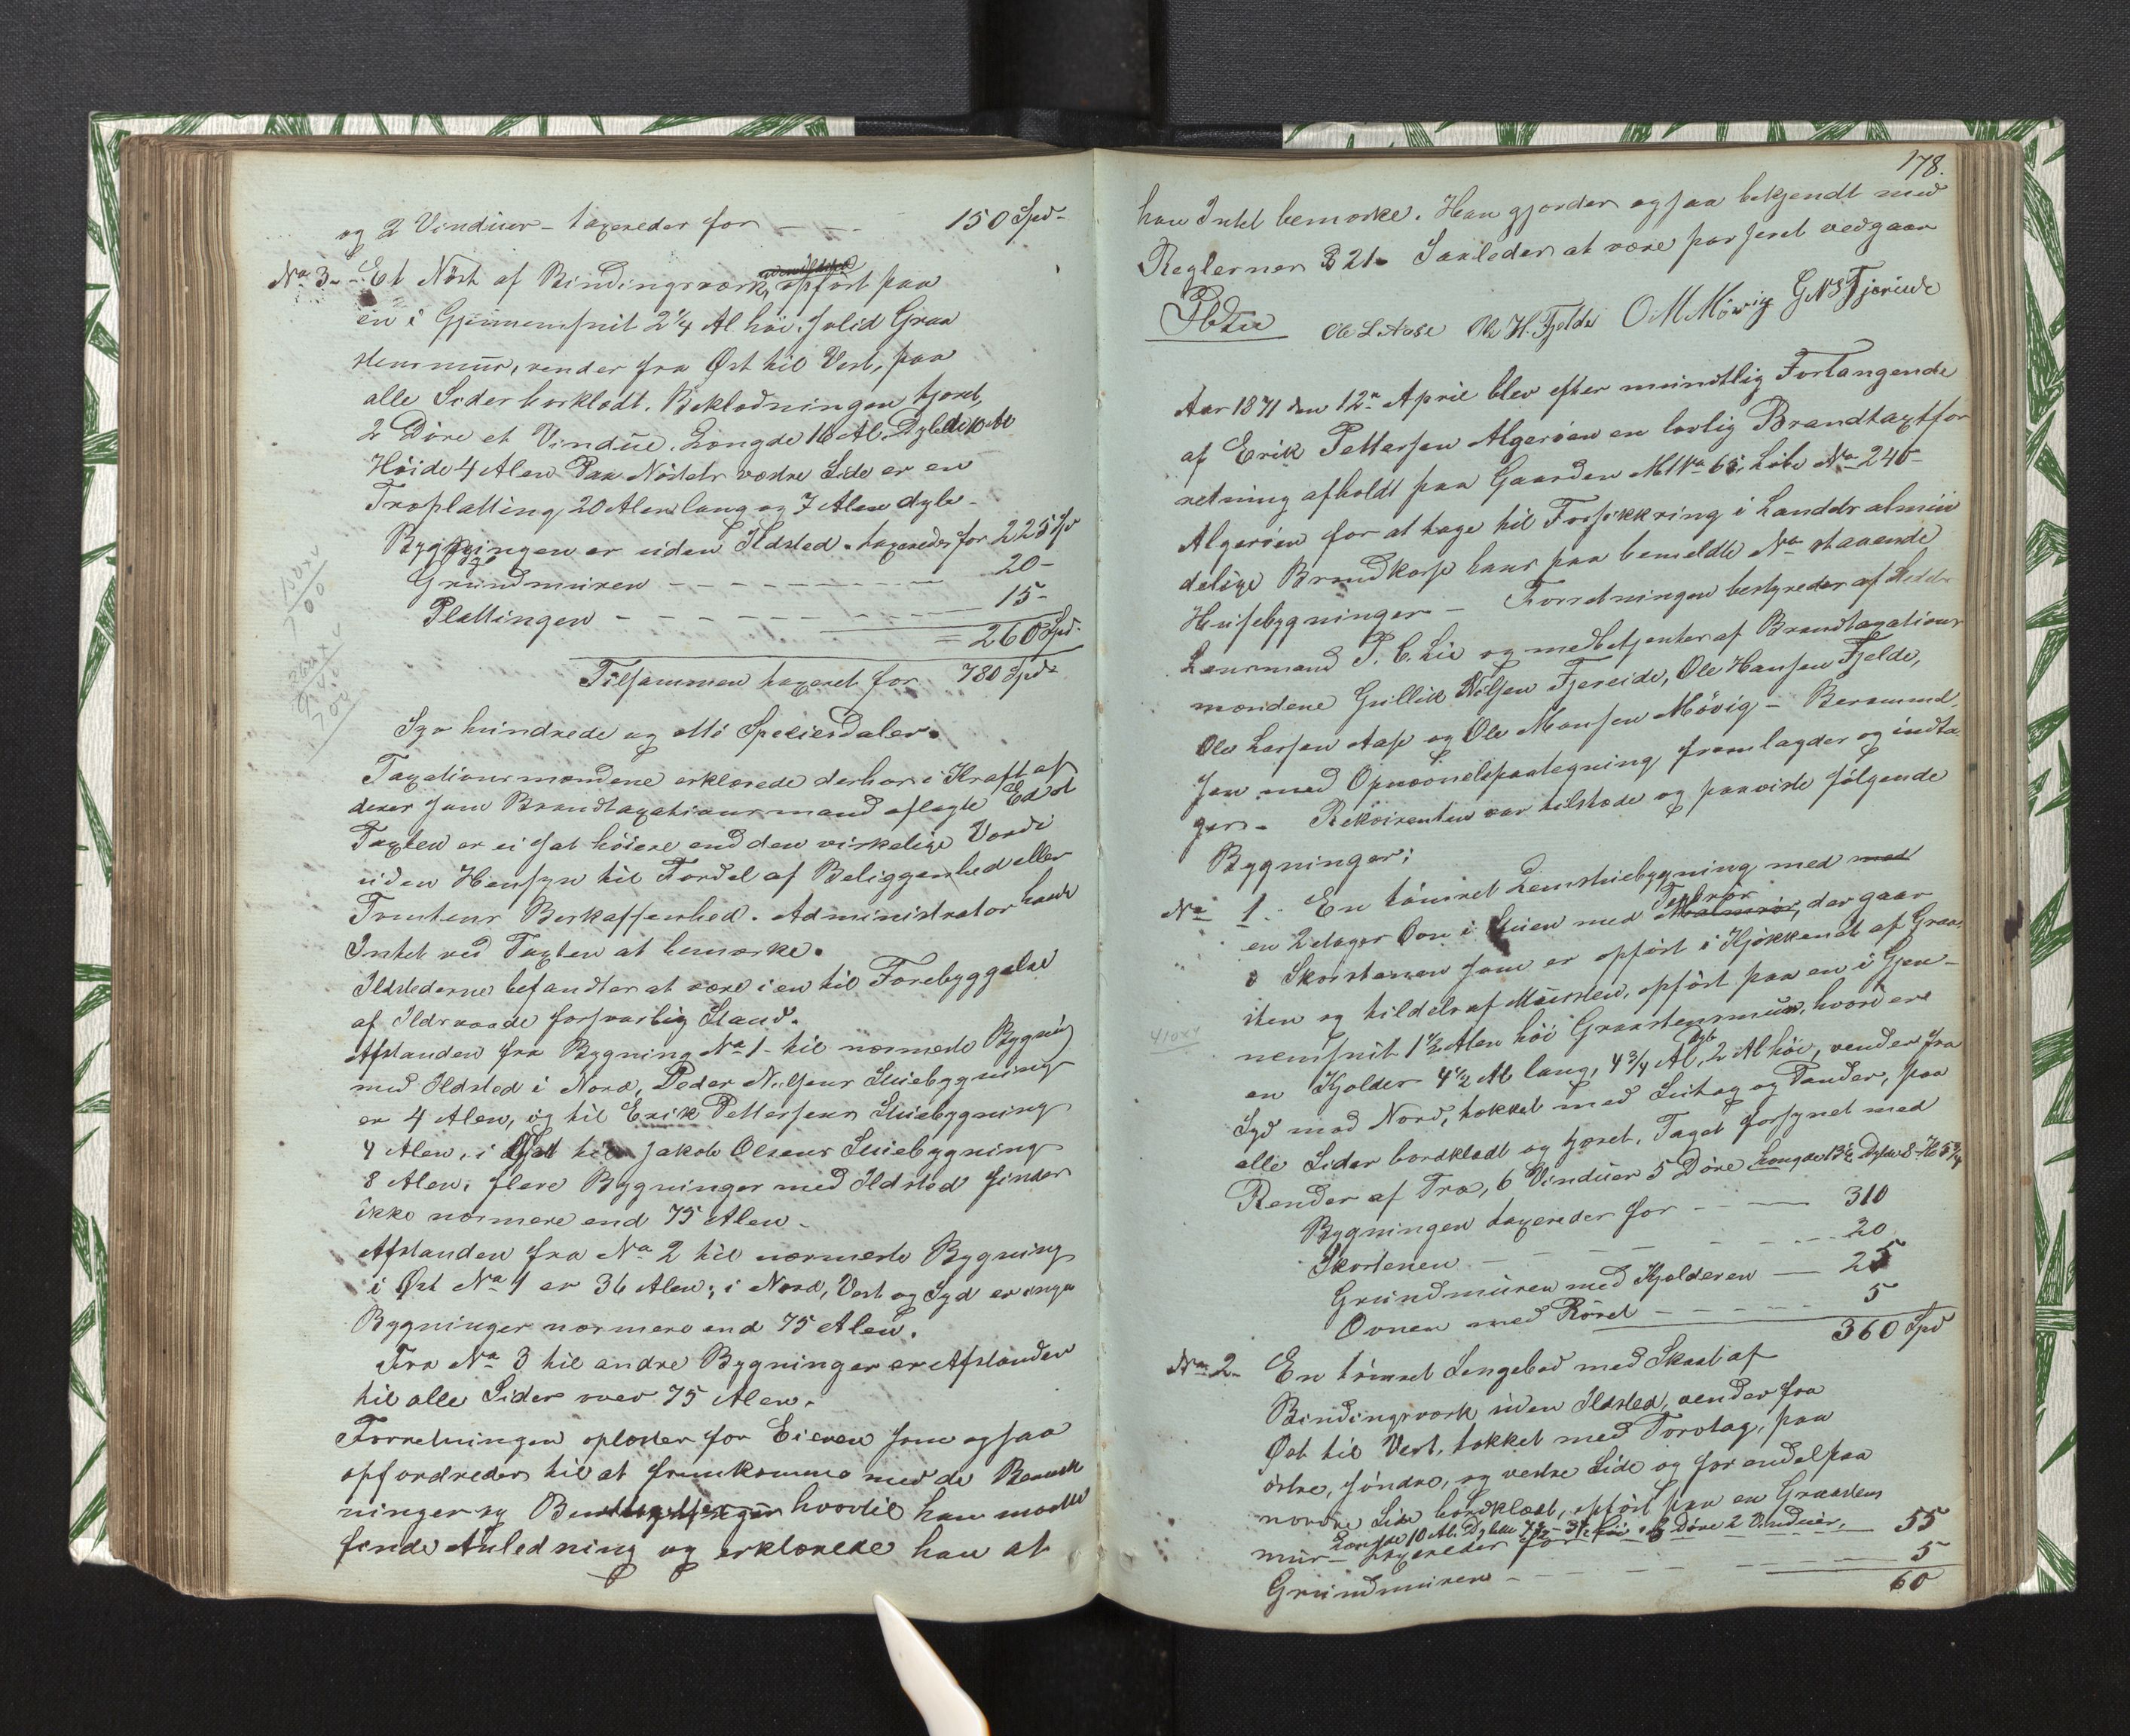 og 2 Vinduer - taxeredes for - - - 150 Spd -
No 3. - Et Nöst af Bindingsværk, opfört paa
en i Gjennemsnit 2 1/4 Al höi, solid Graa
stensmur, vender fra Öst til Vest, paa
alle Sider bordklædt. Beklædningen tjæret,
2 Döre et Vindue. Længde 16 Al. Dybde 10 Al
Höide 4 Alen Paa Nöstets vestre Side er en
Træplatting 20 Alen lang og 7 Alen dyb -
Bygningen er uden Ildsted - taxeredes for 225 Sp
Grundmuren - - - - 20 -
Plattingen - - - - 15 -
= 260 Spd.
Tilsammen taxeret for 780 Spd -
Syv hundrede og otti Speciesdaler.
Taxationsmændene erklærede derhos i Kraft af
deres som Brandtaxationsmænd aflagte Ed at
Taxten er ei sat höiere end den virkelige Værdi
uden Hensyn til Fordel af Beliggenhed eller
Tomtens Beskaffenhed. Administrator havde
Intet ved Taxten at bemærke.
Ildstederne befandtes at være i en til Forebyggelse
af Ildsvaade forsvarlig Stand.
Afstanden fra Bygning No 1 - til nærmeste Bygning
med Ildsted i Nord, Peder Nilsens Stuebygning
er 4 Alen, og til Erik Pettersens Stuebygning
4 Alen, i Syd til Jakob Olsens Stuebygning
8 Alen, flere Bygninger med Ildsted findes
ikke nærmere end 75 Alen -
Afstanden fra No 2 til nærmeste Bygning
i Öst No 1 er 36 Alen; i Nord, Vest og Syd er ingen
Bygninger nærmere end 75 Alen.
Fra No 3 til andre Bygninger er Afstanden
til alle Sider over 75 Alen.
Forretningen oplæstes for Eieren som ogsaa
opfordredes til at fremkomme med de Bemærk
ninger og hvortil han maatte
finde Anledning og erklærede han at
178.
han Intet bemærke. Han gjordes ogsaa bekjendt med
Reglernes § 21. Saaledes at være passeret vedgaar
Ole L Aase Ole H. Fjelde O M Mövig G N S Fjereide
Aar 1871 den 12te April blev efter mundtlig Forlangende
af Erik Pettersen Algeröen en lovlig Brandtaxtfor
retning afholdt paa Gaarden M No 65, Löbe No 240 -
Algeröen for at tage til Forsikkring i Landets almin
delige Brandkasse hans paa bemeldte No staaende
Husebygninger - Forretningen bestyredes af Stedets
Lensmand P. C. Lie og medbetjentes af Brandtaxations
mændene Gullik Nilsen Fjereide, Ole Hansen Fjelde,
Ole Larsen Aase og Ole Monsen Mövig - Berammel
sen med Opnævnelsespaategning fremlagdes og indta
ges - Rekvirenten var tilstede og paaviste fölgende
Bygninger:
No 1. En tömret Lemstuebygning med med
en 2 etages Ovn i Stuen med Malmrör, Teglrör der gaar
i Skorstenen som er opfört i Kjökkenet af Graa
sten og tildels af Mursten, opfört paa en i Gjen -
nemsnit 1 1/2 Alen höi Graastensmur, hvori er
en Kjelder 4 1/2 Al lang, 4 3/4 Al dyb, 2 Al höi, vender fra
Syd mod Nord, tækket med Sutag og Pander, paa
alle Sider bordklædt og tjæret. Taget forsynet med
Render af Træ, 6 Vinduer 5 Döre Længde 13 1/2 Dybde 8 - H 5 3/4
Bygningen taxeredes for - - - 310
Skorstenen - - - - 20
Grundmuren med Kjelderen - 25
Ovnen med Röret - - - - 5
360 Spd
No 2. En tömret Sengebod med Skaat af
Bindingsværk uden Ildsted, vender fra
Öst til Vest, tækket med Torvtag, paa
östre, söndre, og vestre Side og for endel paa
nordre Side bordklædt, opfört paa en Graastens
Længde 10 Al. Dybde 7 1/2 - 3 1/2 höi, 3 Döre 2 Vinduer,
mur - taxeredes for - - - 55
Grundmuren - - - - 5
60